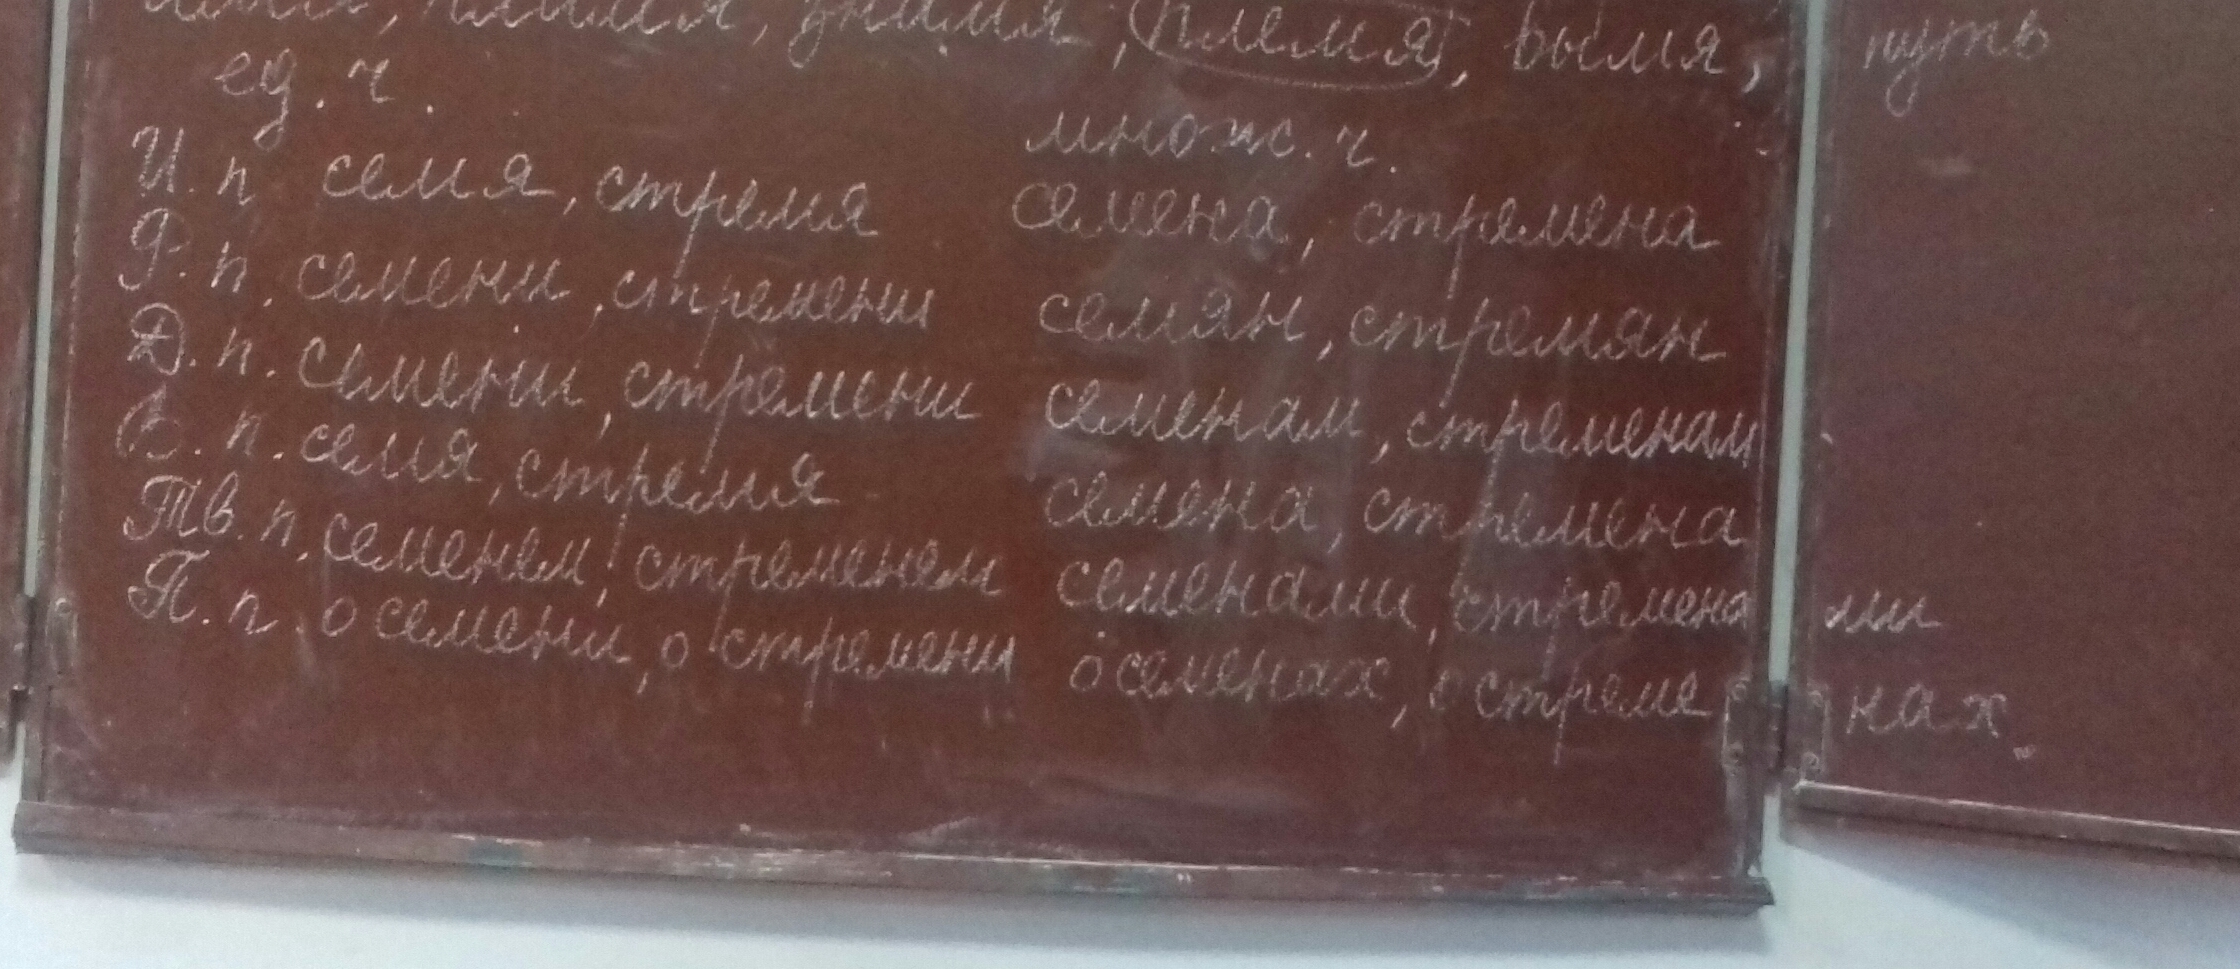 пламя, знамя, племя, вымя, путь
ед. ч. множ. ч.
И. п семя, стремя семена, стремена
Р. п. семени, стремени семян, стремян
Д. п. семени, стремени семенам, стременам
В. п. семя, стремя семена, стремена
Тв. п. семенем, стременем семенами, стременами
П. п. о семени, о стремени о семенах, о стременах